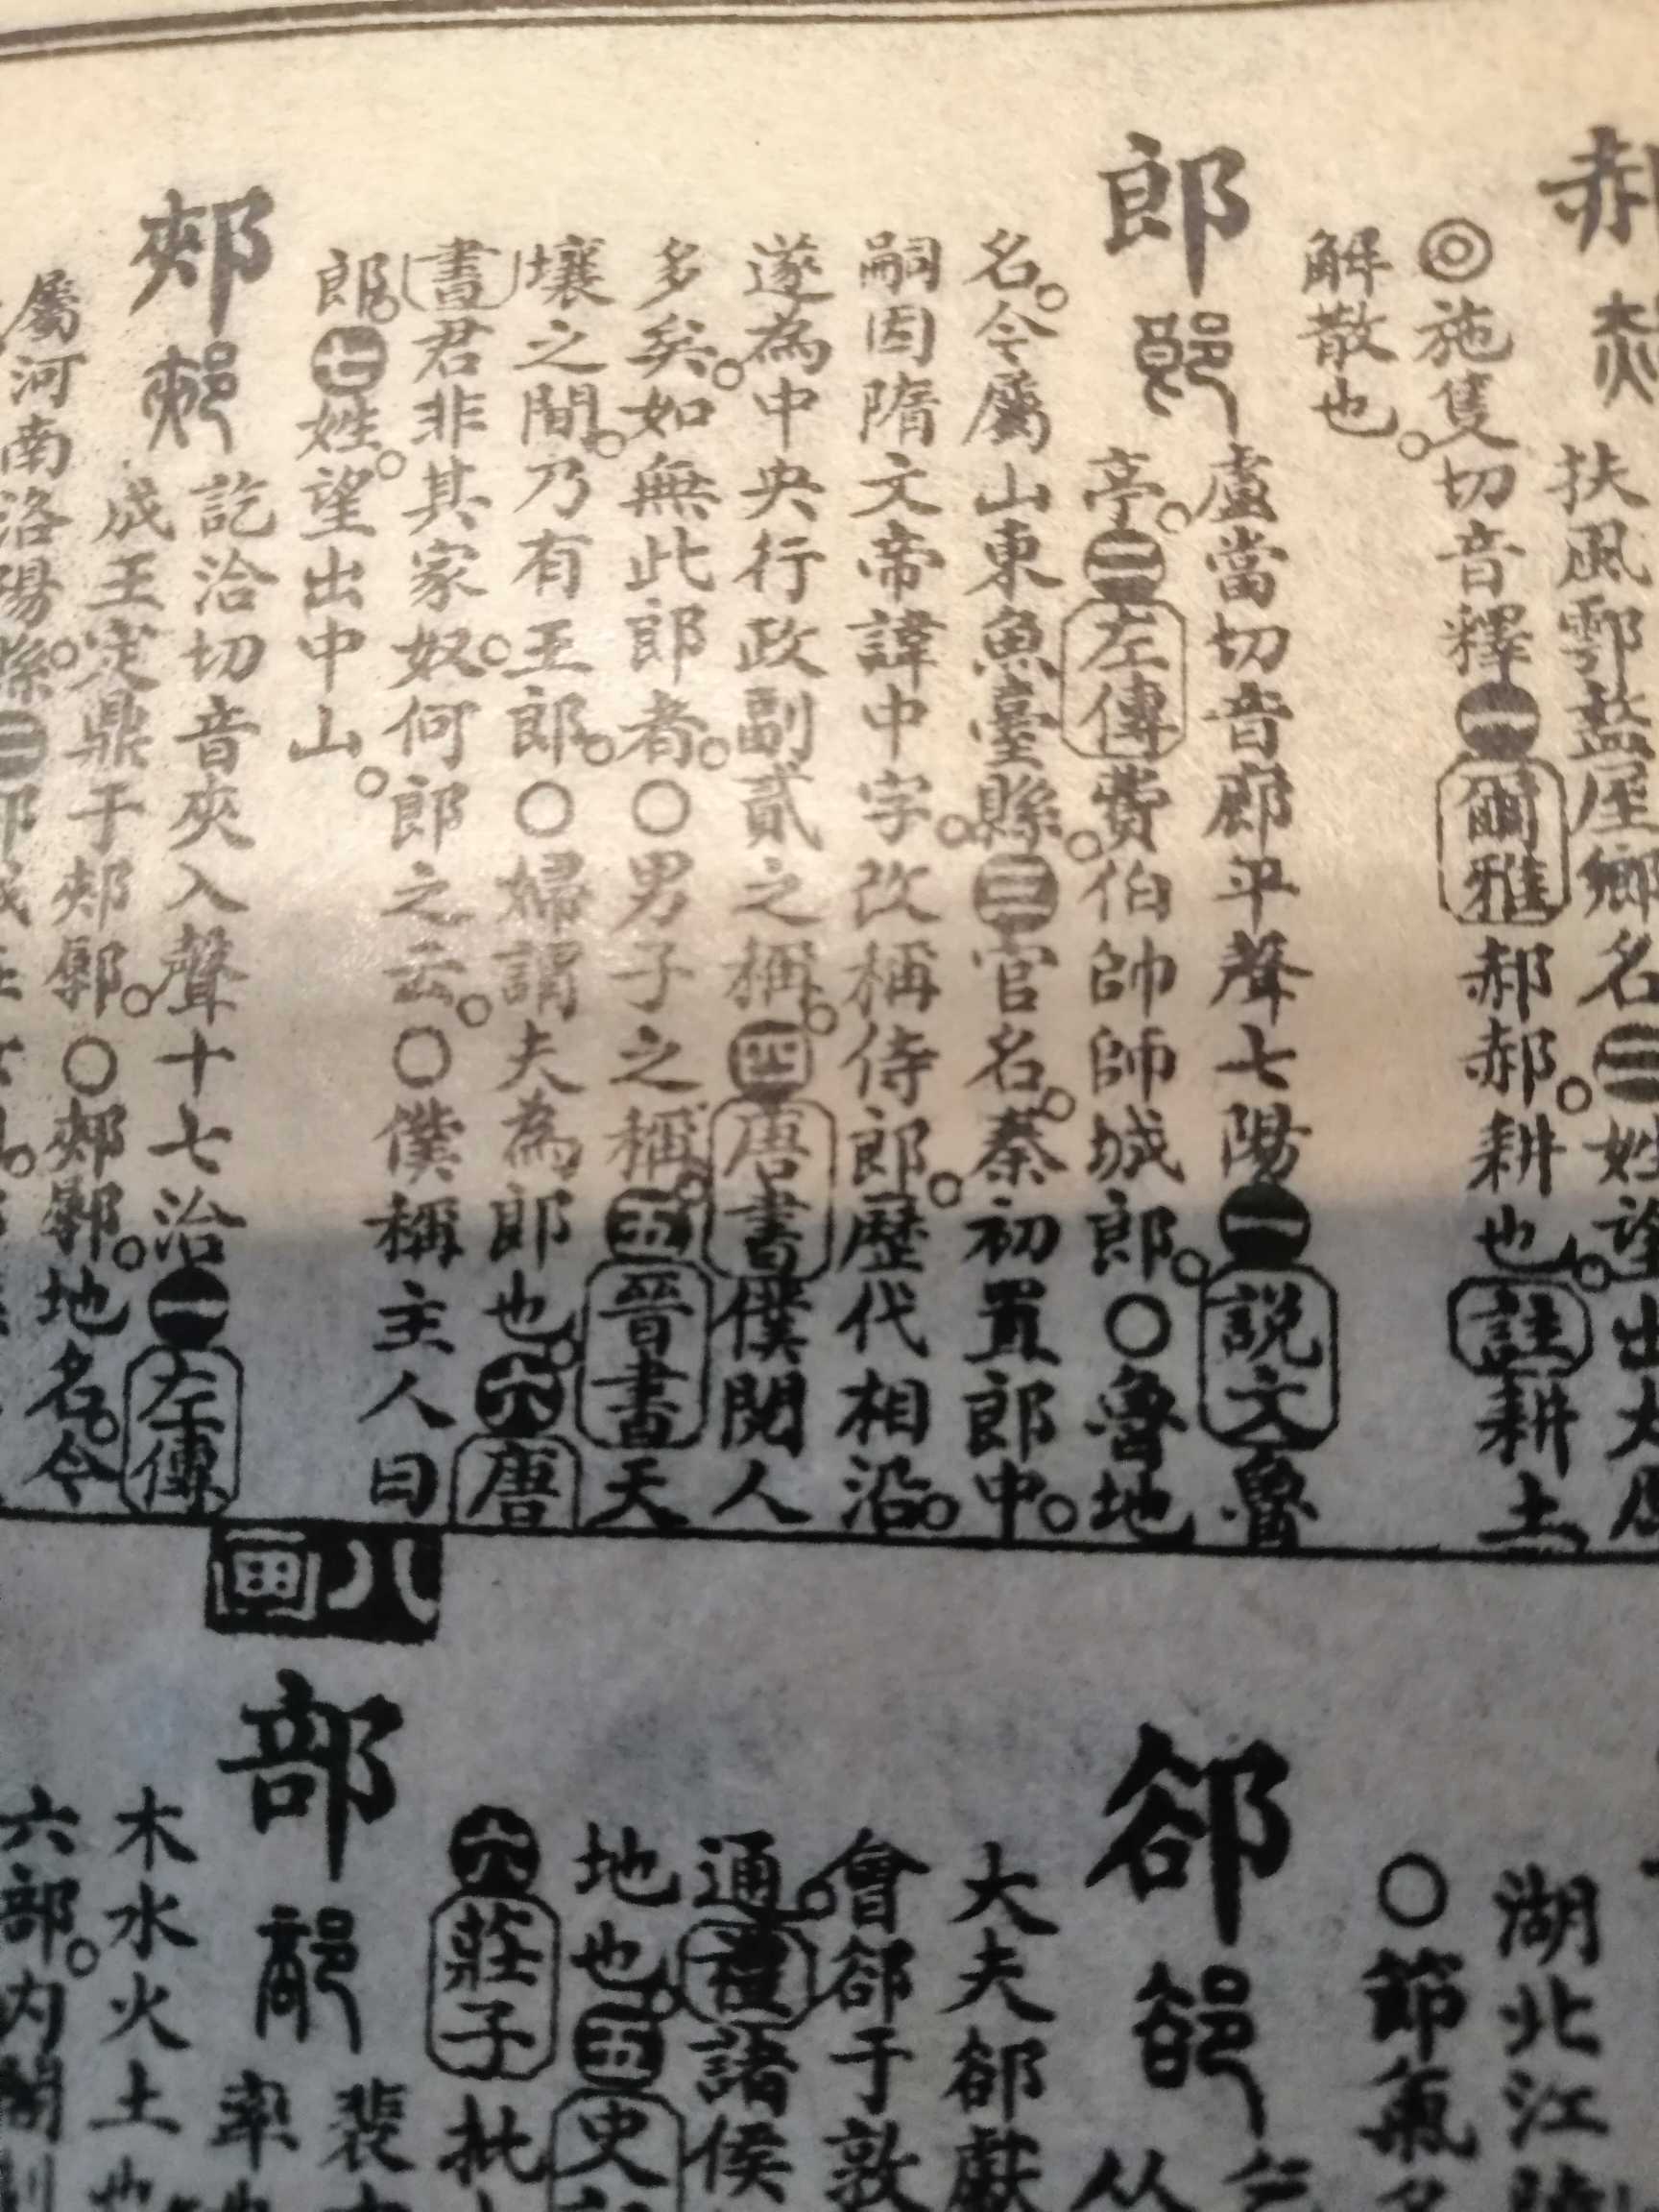 郝
扶風鄠盩厔鄉名㊁姓望出太原
◎施隻切音釋㊀爾雅郝郝耕也註耕土
解散也。
郎
盧當切音廊平聲七陽㊀說文魯
亭。㊁左傳費伯帥師城郎。○魯地
名。今屬山東魚臺縣。㊂官名。秦初置郎中。
嗣因隋文帝諱中字。改稱侍郎。歷代相沿。
遂為中央行政副貳之稱。㊃唐書僕閱人
多矣。如無此郎者。○男子之稱。㊄晉書天
壤之間。乃有王郎。○婦謂夫為郎也。㊅唐
書君非其家奴。何郎之云。○僕稱主人曰
郎。㊆姓。望出中山。
郟
訖洽切音夾入聲十七洽㊀左傳
成王定鼎于郟鄏。○郟鄏。地名。今
屬河南洛陽縣。㊁
八画
湖北江陵
○節氣名
郤
大夫郤獻
會郤于敦
通。禮諸侯
地也。㊄史
㊅莊子批
部
裴
率
木水火土也
六部。内閣